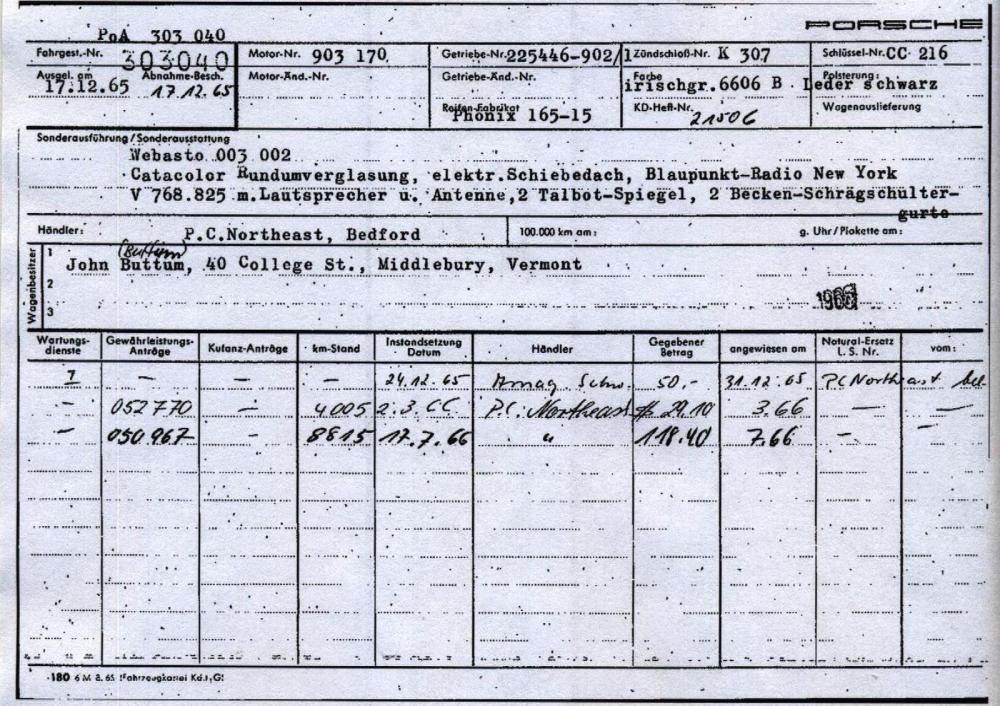 PORSCHE
PoA 303 040
Fahrgest.-Nr. 303040 Motor-Nr. 903 170 Getriebe-Nr. 225446-902/1 Zündschloß-Nr. K 307 Schlüssel-Nr. CC 216
Ausgel. am 17.12.65 Abnahme-Besch. 17.12.65 Motor-Änd.-Nr. Getriebe-Änd.-Nr. Farbe irischgr.6606 B Polsterung: Leder schwarz
Reifen-Fabrikat Phönix 165-15 KD-Heft-Nr. 21506 Wagenauslieferung
Sonderausführung/Sonderausstattung
Webasto 003 002
Catacolor Rundumverglasung, elektr.Schiebedach, Blaupunkt-Radio New York
V 768.825 m.Lautsprecher u. Antenne,2 Talbot-Spiegel, 2 Becken-Schrägschulter-
gurte
Händler: P.C.Northeast, Bedford 100.000 km am: g. Uhr/Plakette am:
Wagenbesitzer
(Buttum)
1 John Buttum, 40 College St., Middlebury, Vermont
2
3
Wartungs-dienste Gewährleistungs-Anträge Kulanz-Anträge km-Stand Instandsetzung Datum Händler Gegebener Betrag angewiesen am Natural-Ersatz L. S. Nr. vom:
1 — — — 24.12.65 Amag 50,- 31.12.65 PC Northeast bel.
- 052770 — 4005 2.3.66 P.C. Northeast $ 29.10 3.66 — —
- 050967 - 8815 17.7.66 " 118.40 7.66 — —
180 6 M 8. 65 (Fahrzeugkartei Kd.)